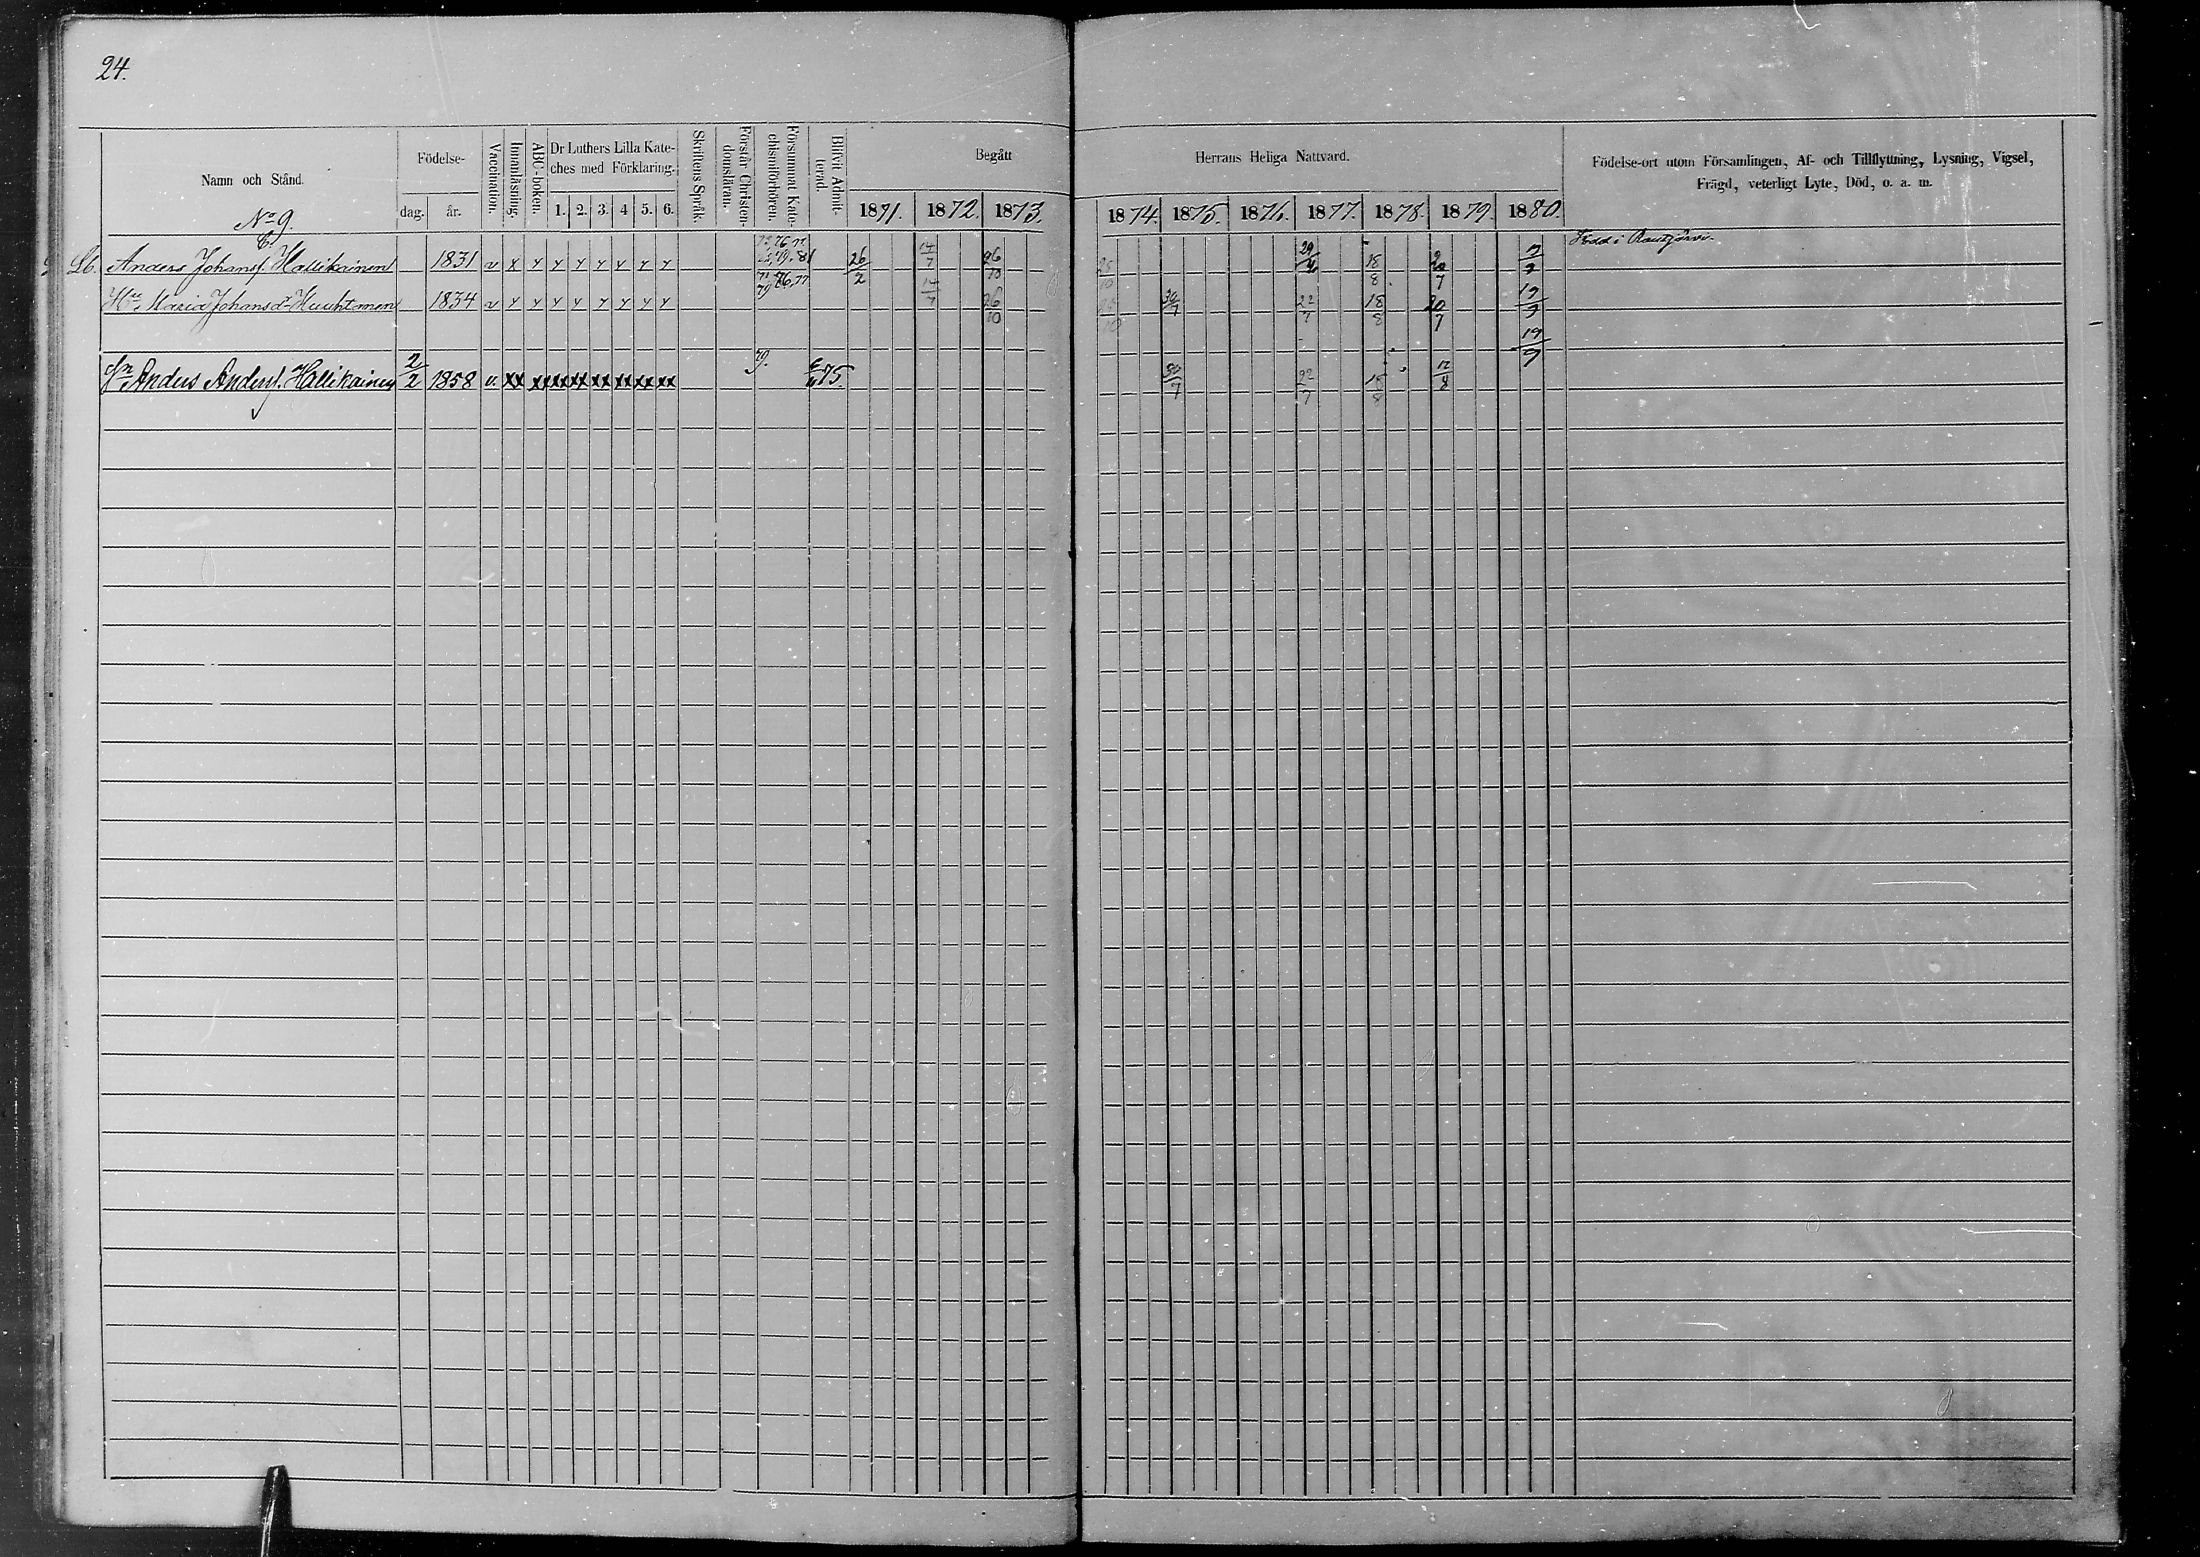 24.
Namn och Stånd.
Födelse-
dag. år.
Vaccination.
Innanläsning.
ABC-boken.
Dr Luthers Lilla Kate-
ches med Förklaring.
1. 2. 3. 4 5. 6.
Skriftens Språk.
Förstår Christen-
domsläran.
Försummat Kate-
chismiförhören.
Blifvit Admit-
terad.
Begått
1871. 1872. 1873.
Herrans Heliga Nattvard.
1874. 1875. 1876. 1877. 1878. 1879. 1880.
Födelse-ort utom Församlingen, Af- och Tillflyttning, Lysning, Vigsel,
Frägd, veterligt Lyte, Död, o. a. m.
No 9.
Lb. Anders Johansf. Hallikainen 1831 v x y y y y y y y 26/2 14/7 26/10 29/4 18/8 20/7 Född i Rautjärvi.
Hu Maria Johansdr Huuhtanen 1834 v y y y y y y y y 14/7 26/10 30/7 22/7 18/8 20/7 19/9
Sn Anders Andersf. Hallikainen 2/2 1858 v. xx xx xx xx xx xx xx xx 79. 75. 30/7 22/7 18/8 12/8 19/9